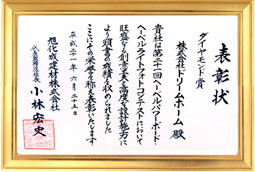 表彰状
ダイヤモンド賞
株式会社ドリームホーム 殿
貴社は第二十一回ヘーベルパワーボード・
ヘーベルライトフォトコンテストにおいて
旺盛なる創造力と高度な設計施工力に
より頭書の成績を収められました
ここにその栄誉を称え表彰いたします
平成二十一年六月二十五日
旭化成建材株式会社
代表取締役社長 小林宏史